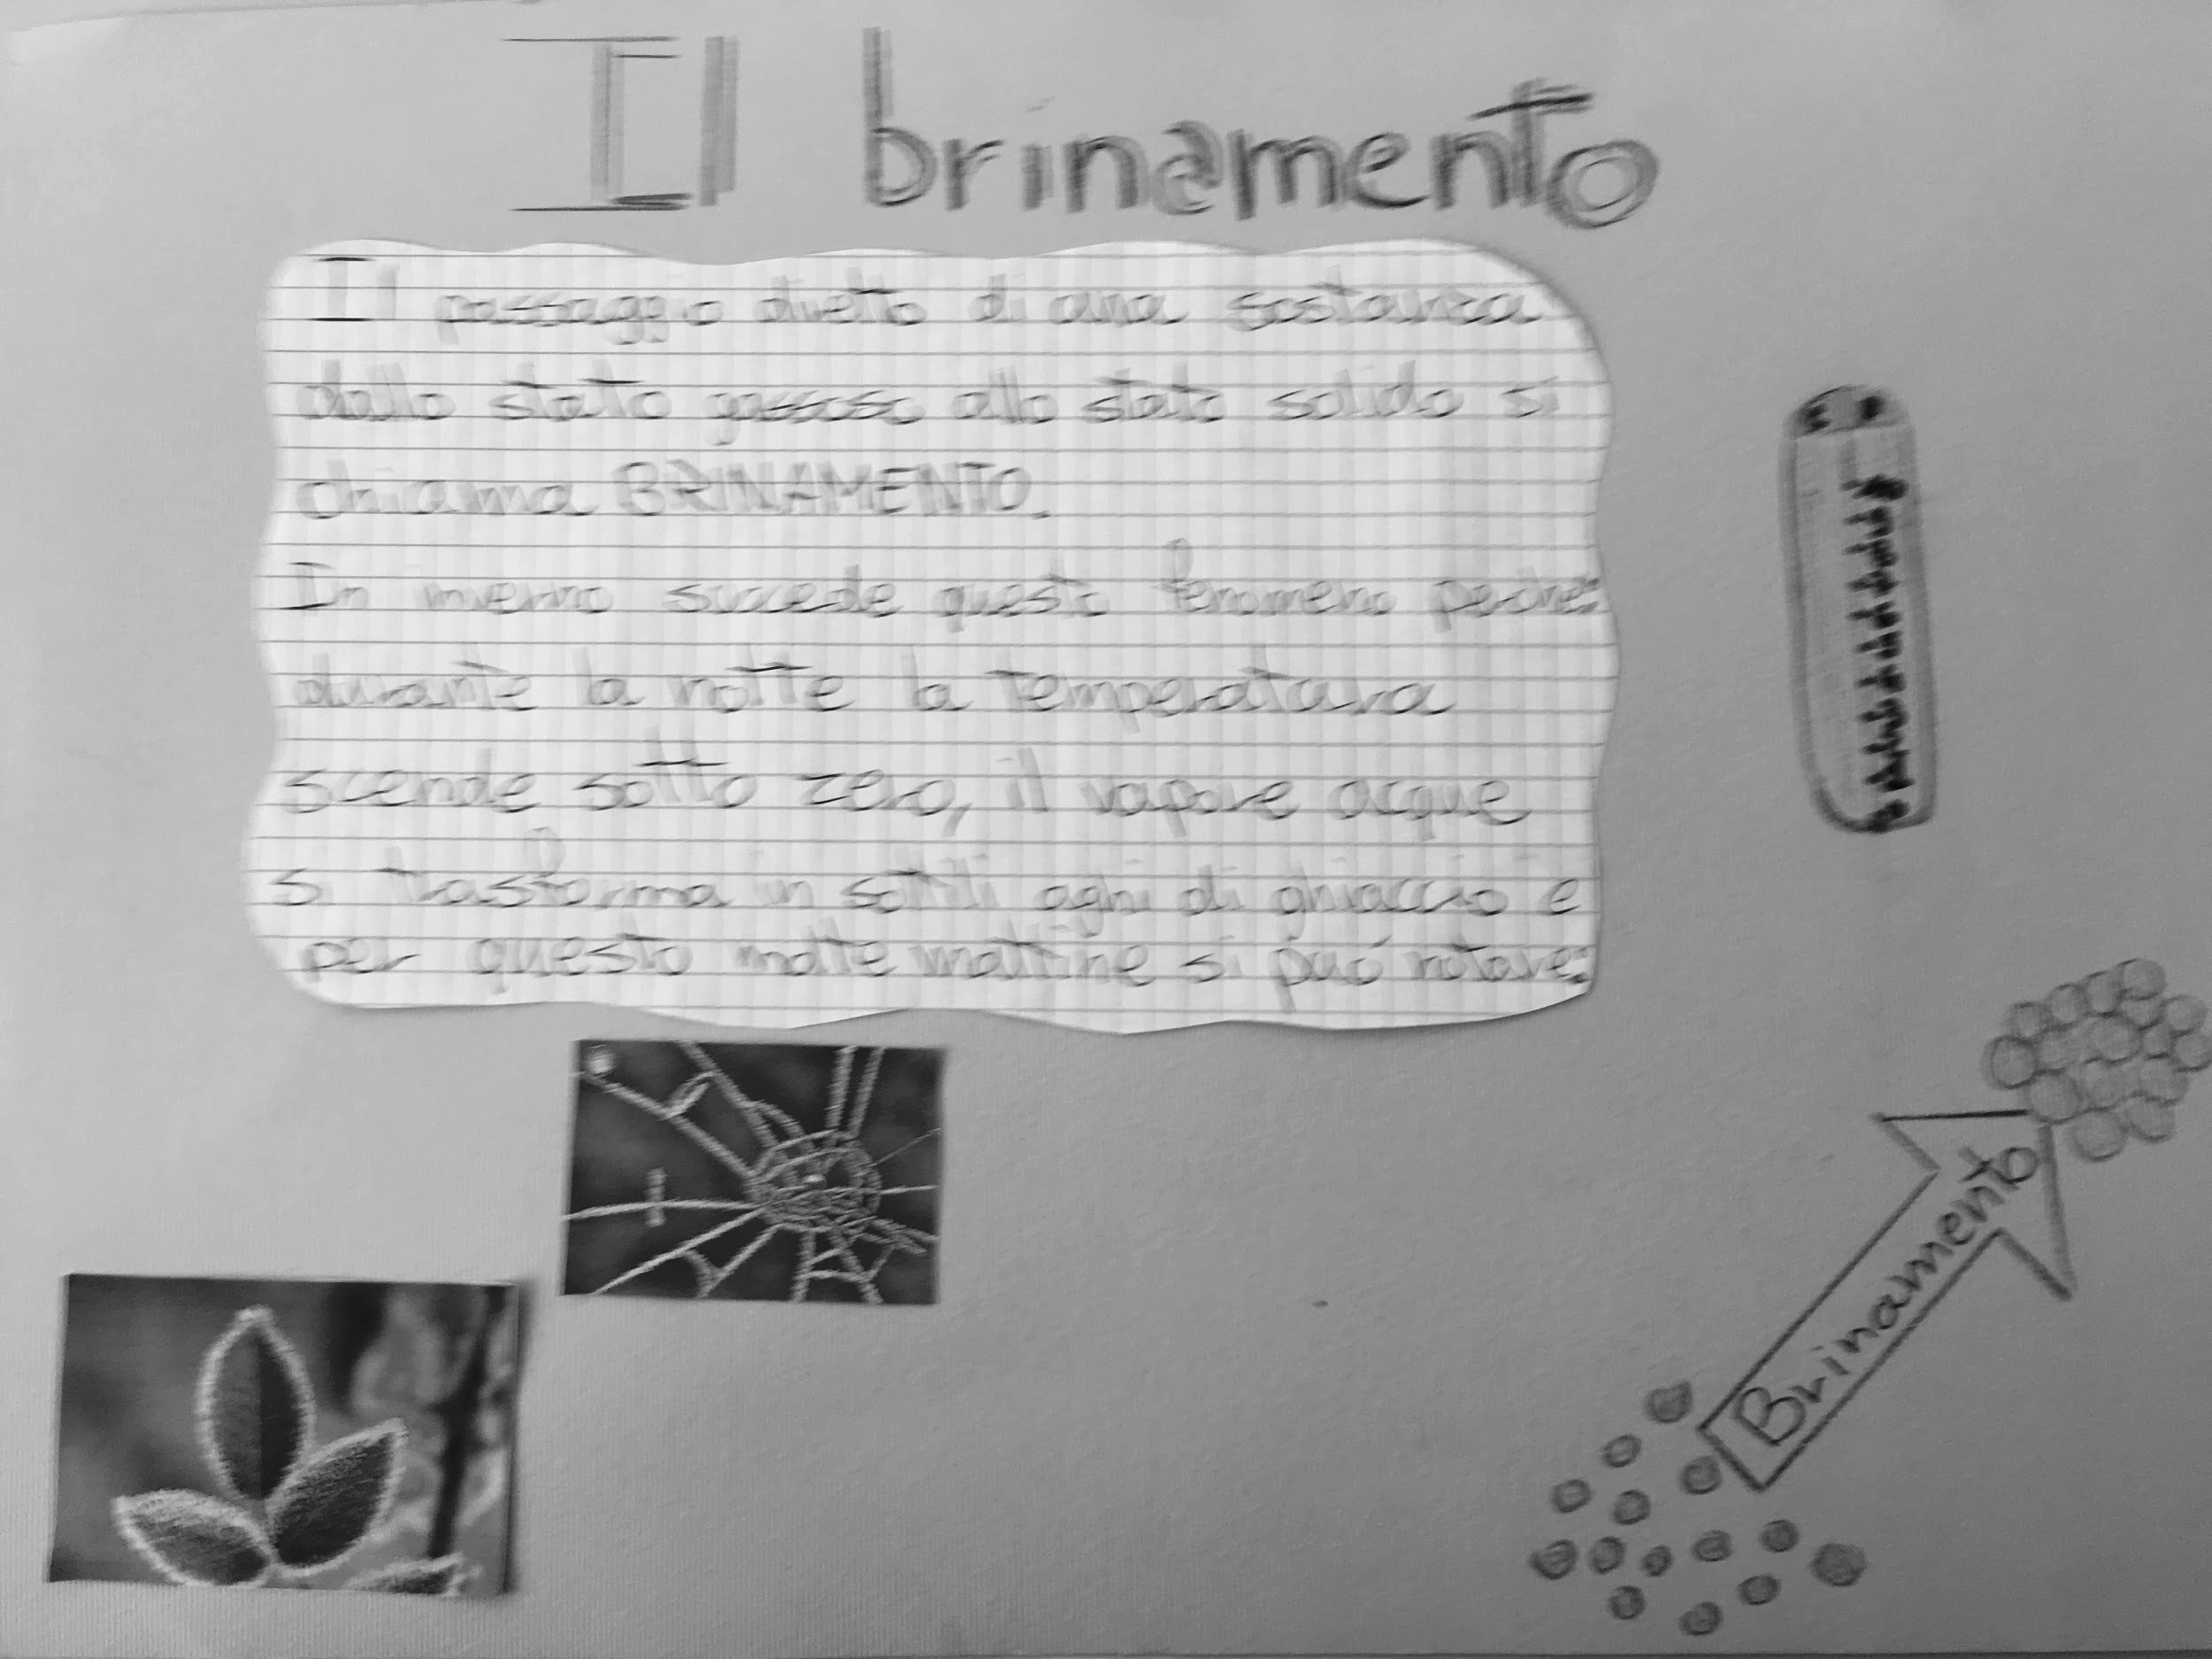 Il brinamento
Il passaggio diretto di una sostanza
dallo stato gassoso allo stato solido si
chiama BRINAMENTO.
In inverno succede questo fenomeno perché:
durante la notte la temperatura
scende sotto zero, il vapore acque
si trasforma in sottili aghi di ghiaccio e
per questo molte mattine si può notare:
Brinamento